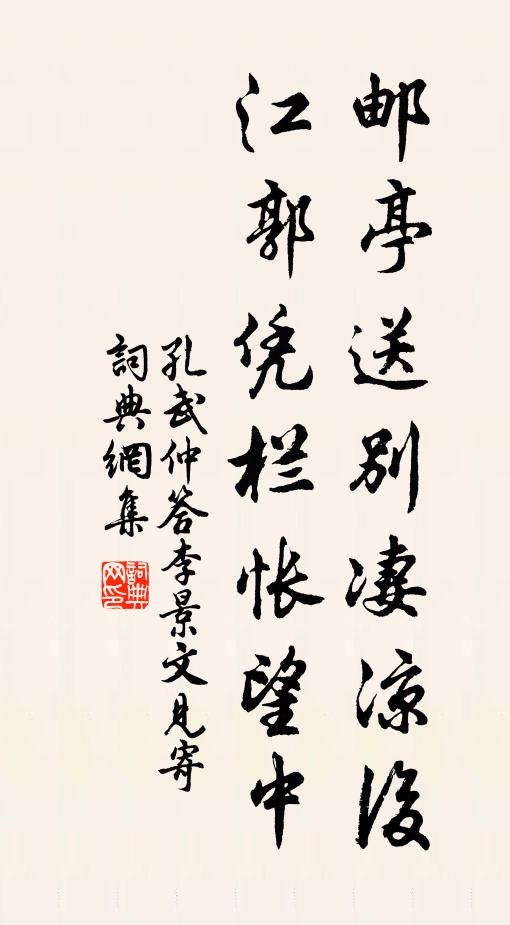 邮亭送别凄凉后
江郭凭栏怅望中
孔武仲答李景文見寄
詞典網集
詞典网印